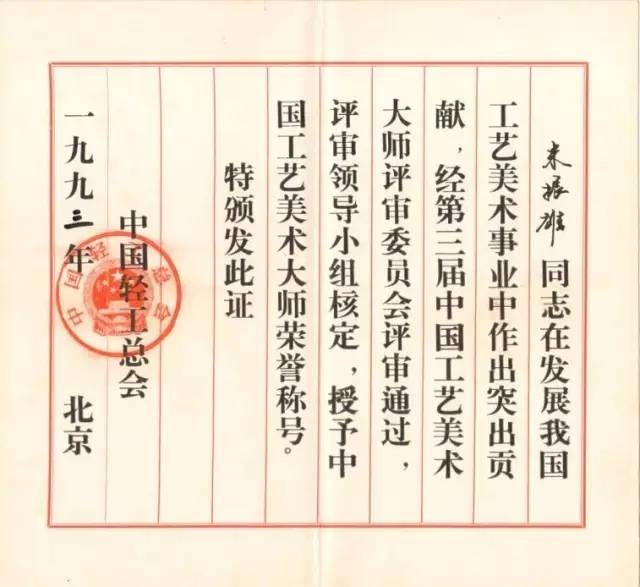 米振雄同志在发展我国
工艺美术事业中作出突出贡
献，经第三届中国工艺美术
大师评审委员会评审通过，
评审领导小组核定，授予中
国工艺美术大师荣誉称号。
特颁发此证
中国轻工总会
一九九三年 北京
中国轻工总会